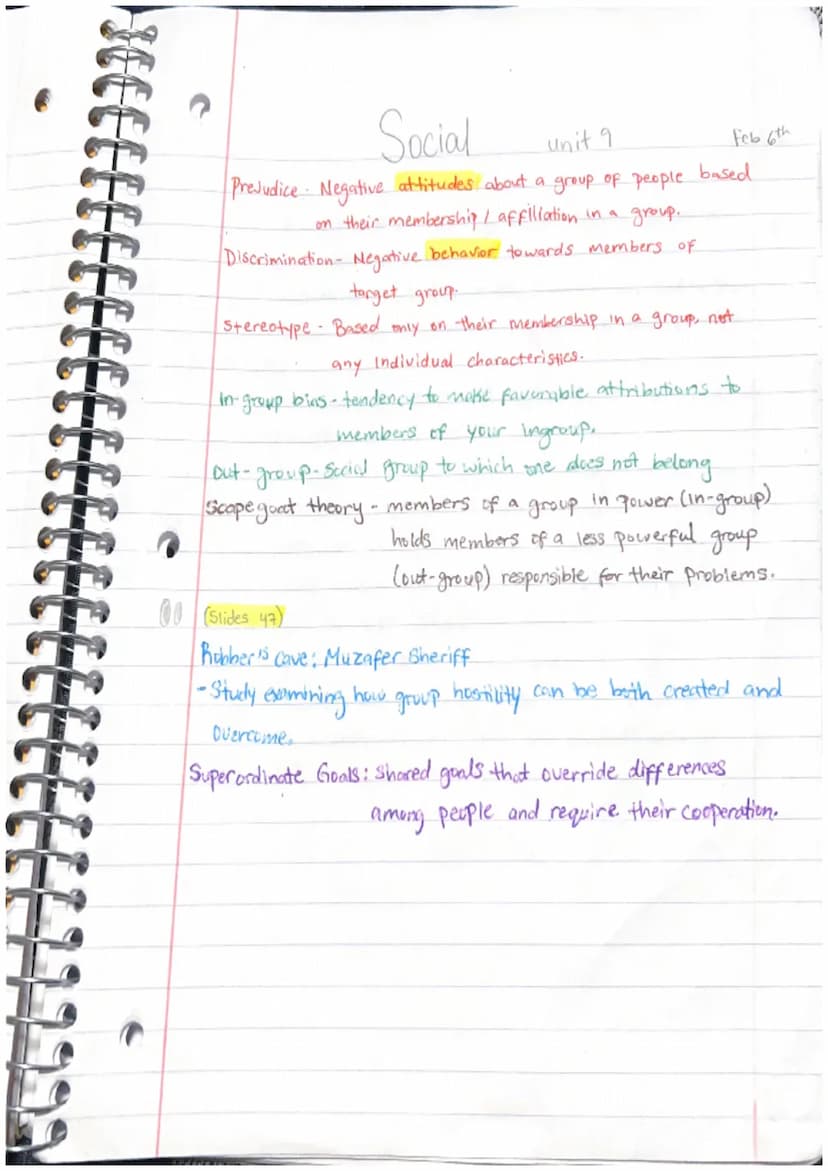 Social unit 9 Feb 6th
Prejudice - Negative attitudes about a group of people based
on their membership / affiliation in a group.
Discrimination - Negative behavior towards members of
target group.
Stereotype - Based only on their membership in a group, not
any individual characteristics.
In-group bias - tendency to make favorable attributions to
members of your ingroup.
Out-group - Social group to which one does not belong
Scapegoat theory - members of a group in power (in-group)
holds members of a less powerful group
(out-group) responsible for their problems.
(Slides 47)
Robber's Cave: Muzafer Sheriff
- Study examining how group hostility can be both created and
overcome.
Superordinate Goals: Shared goals that override differences
among people and require their cooperation.